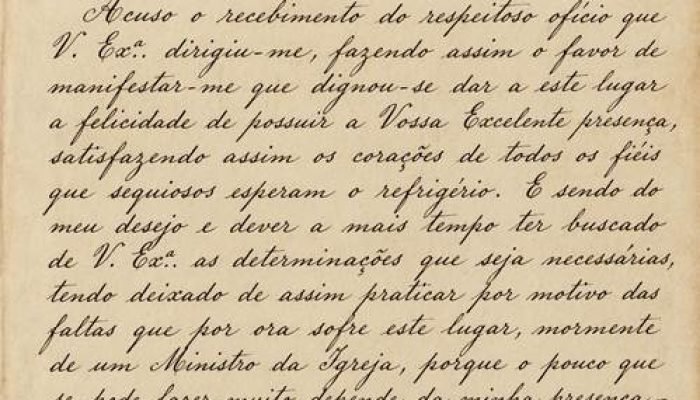 Acuso o recebimento do respeitoso ofício que
V. Exª. dirigiu-me, fazendo assim o favor de
manifestar-me que dignou-se dar a este lugar
a felicidade de possuir a Vossa Excelente presença,
satisfazendo assim os corações de todos os fiéis
que sequiosos esperam o refrigério. E sendo do
meu desejo e dever a mais tempo ter buscado
de V. Exª. as determinações que seja necessárias,
tendo deixado de assim praticar por motivo das
faltas que por ora sofre este lugar, mormente
de um Ministro da Igreja, porque o pouco que
se pode fazer muito depende da minha presença -